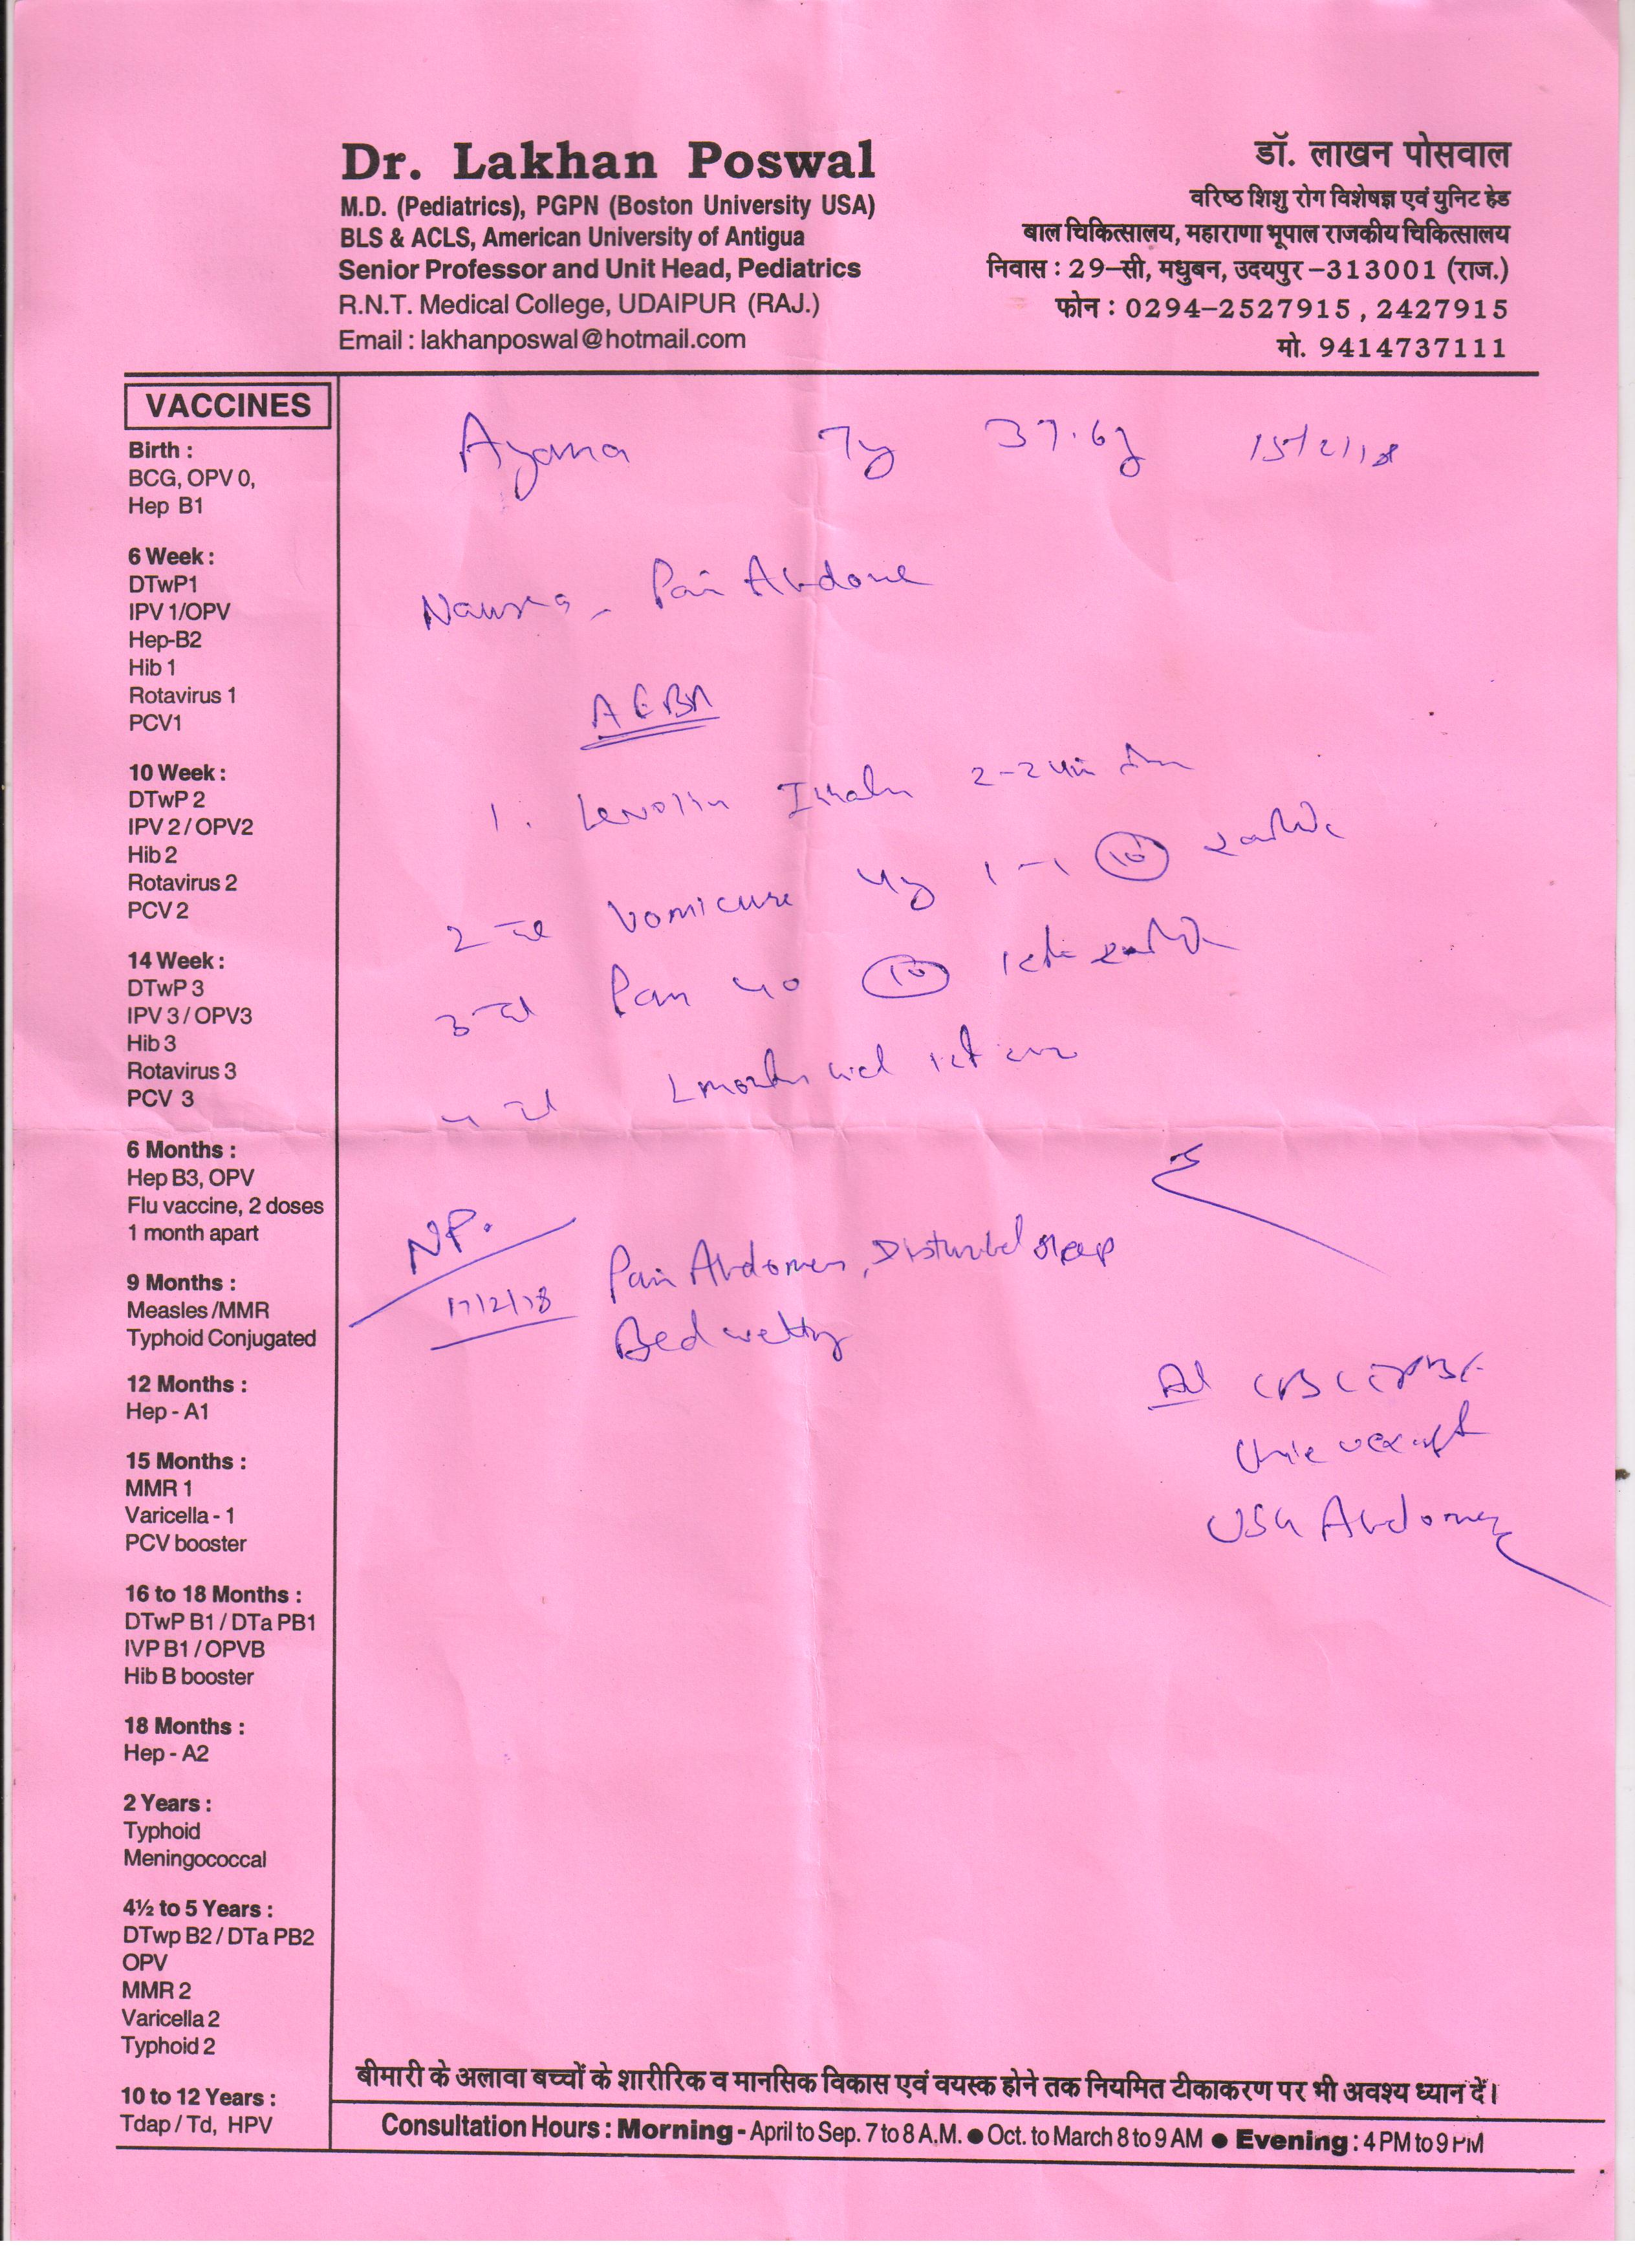 Dr. Lakhan Poswal
M.D. (Pediatrics), PGPN (Boston University USA)
BLS & ACLS, American University of Antigua
Senior Professor and Unit Head, Pediatrics
R.N.T. Medical College, UDAIPUR (RAJ.)
Email : lakhanposwal@hotmail.com
डॉ. लाखन पोसवाल
वरिष्ठ शिशु रोग विशेषज्ञ एवं युनिट हेड
बाल चिकित्सालय, महाराणा भूपाल राजकीय चिकित्सालय
निवास : 29-सी, मधुबन, उदयपुर -313001 (राज.)
फोन : 0294-2527915 , 2427915
मो. 9414737111
VACCINES
Birth :
BCG, OPV 0,
Hep B1
6 Week :
DTwP1
IPV 1/OPV
Hep-B2
Hib 1
Rotavirus 1
PCV1
10 Week :
DTwP 2
IPV 2 / OPV2
Hib 2
Rotavirus 2
PCV 2
14 Week :
DTwP 3
IPV 3 / OPV3
Hib 3
Rotavirus 3
PCV 3
6 Months :
Hep B3, OPV
Flu vaccine, 2 doses
1 month apart
9 Months :
Measles /MMR
Typhoid Conjugated
12 Months :
Hep - A1
15 Months :
MMR 1
Varicella - 1
PCV booster
16 to 18 Months :
DTwP B1 / DTa PB1
IVP B1 / OPVB
Hib B booster
18 Months :
Hep - A2
2 Years :
Typhoid
Meningococcal
4½ to 5 Years :
DTwp B2 / DTa PB2
OPV
MMR 2
Varicella 2
Typhoid 2
10 to 12 Years :
Tdap / Td, HPV
7y 37.6 15/2/18
Nausea - Pain Abdome
1. Levolin 2-2
2 Vomicure 4y 1-1 10
3 Pan 40 10
4
NP.
17/2/18 Pain Abdomen, Disturbed sleep
Bed wetting
Ad CBC
USG Abdomen
बीमारी के अलावा बच्चों के शारीरिक व मानसिक विकास एवं वयस्क होने तक नियमित टीकाकरण पर भी अवश्य ध्यान दें।
Consultation Hours : Morning - April to Sep. 7 to 8 A.M. ● Oct. to March 8 to 9 AM ● Evening : 4 PM to 9 PM